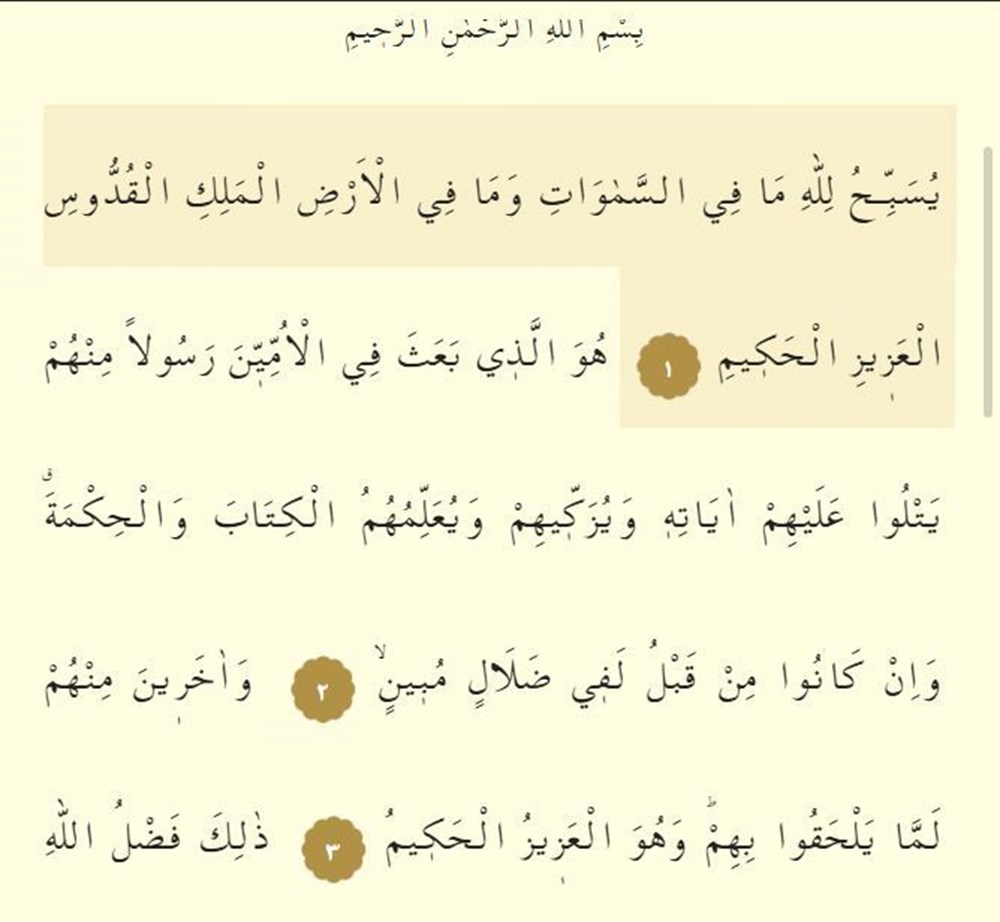 بِسْمِ اللهِ الرَّحْمٰنِ الرَّح۪يمِ
يُسَبِّحُ لِلّٰهِ مَا فِي السَّمٰوَاتِ وَمَا فِي الْاَرْضِ الْمَلِكِ الْقُدُّوسِ
الْعَز۪يزِ الْحَك۪يمِ ١ هُوَ الَّذ۪ي بَعَثَ فِي الْاُمِّيّ۪نَ رَسُولاً مِنْهُمْ
يَتْلُوا عَلَيْهِمْ اٰيَاتِه۪ وَيُزَكّ۪يهِمْ وَيُعَلِّمُهُمُ الْكِتَابَ وَالْحِكْمَةَۗ
وَاِنْ كَانُوا مِنْ قَبْلُ لَف۪ي ضَلَالٍ مُب۪ينٍۙ ٢ وَاٰخَر۪ينَ مِنْهُمْ
لَمَّا يَلْحَقُوا بِهِمْۜ وَهُوَ الْعَز۪يزُ الْحَك۪يمُ ٣ ذٰلِكَ فَضْلُ اللّٰهِ